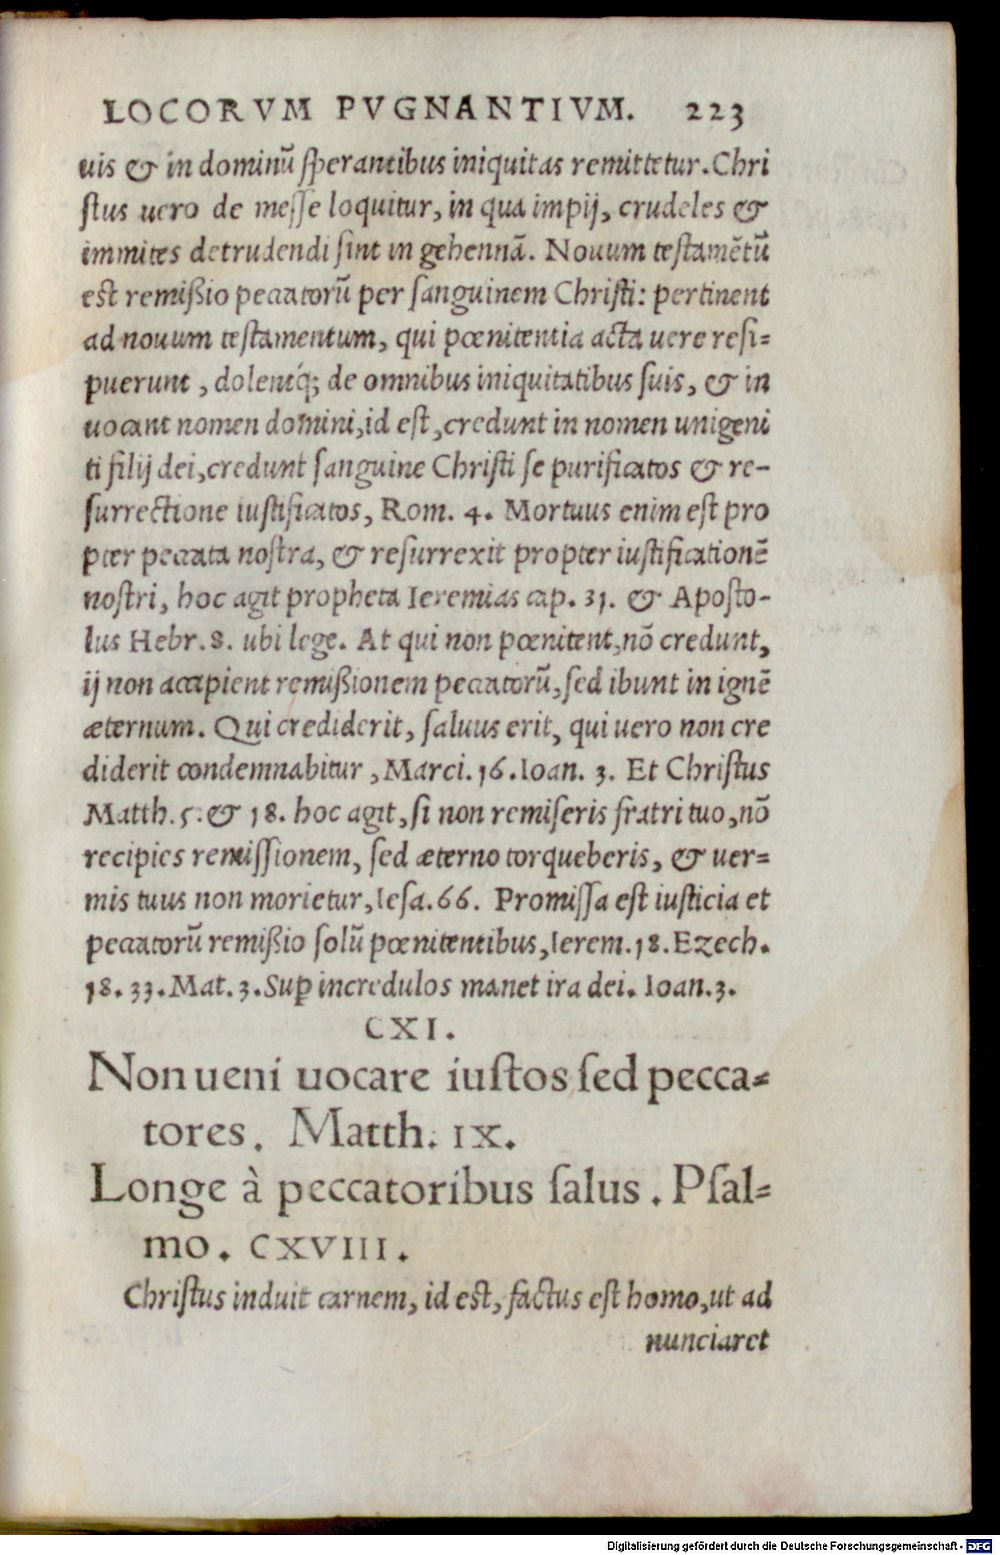 LOCORVM PVGNANTIVM. 223
uis & in dominū sperantibus iniquitas remittetur. Chri
stus uero de messe loquitur, in qua impij, crudeles &
immites detrudendi sint in gehennā. Nouum testamētū
est remißio peccatorū per sanguinem Christi: pertinent
ad nouum testamentum, qui pœnitentia acta uere resi=
puerunt, dolentq́; de omnibus iniquitatibus suis, & in
uocant nomen domini, id est, credunt in nomen unigeni
ti filij dei, credunt sanguine Christi se purificatos & re-
surrectione iustificatos, Rom. 4. Mortuus enim est pro
pter peccata nostra, & resurrexit propter iustificationē
nostri, hoc agit propheta Ieremias cap. 31. & Aposto-
lus Hebr. 8. ubi lege. At qui non pœnitent, nō credunt,
ij non accipient remißionem peccatorū, sed ibunt in ignē
æternum. Qui crediderit, saluus erit, qui uero non cre
diderit condemnabitur, Marci. 16. Ioan. 3. Et Christus
Matth. 5. & 18. hoc agit, si non remiseris fratri tuo, nō
recipies remissionem, sed æterno torqueberis, & uer=
mis tuus non morietur, Iesa. 66. Promissa est iusticia et
peccatorū remißio solū pœnitentibus, Ierem. 18. Ezech.
18. 33. Mat. 3. Suꝑ incredulos manet ira dei. Ioan. 3.
CXI.
Non ueni uocare iustos sed pecca=
tores. Matth. IX.
Longe à peccatoribus salus. Psal=
mo. CXVIII.
Christus induit carnem, id est, factus est homo, ut ad
nunciaret
Digitalisierung gefördert durch die Deutsche Forschungsgemeinschaft - DFG